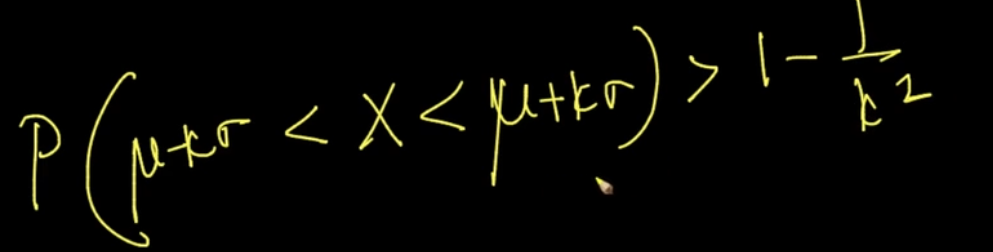 P(μ-kσ < X < μ+kσ) > 1 - 1/k²